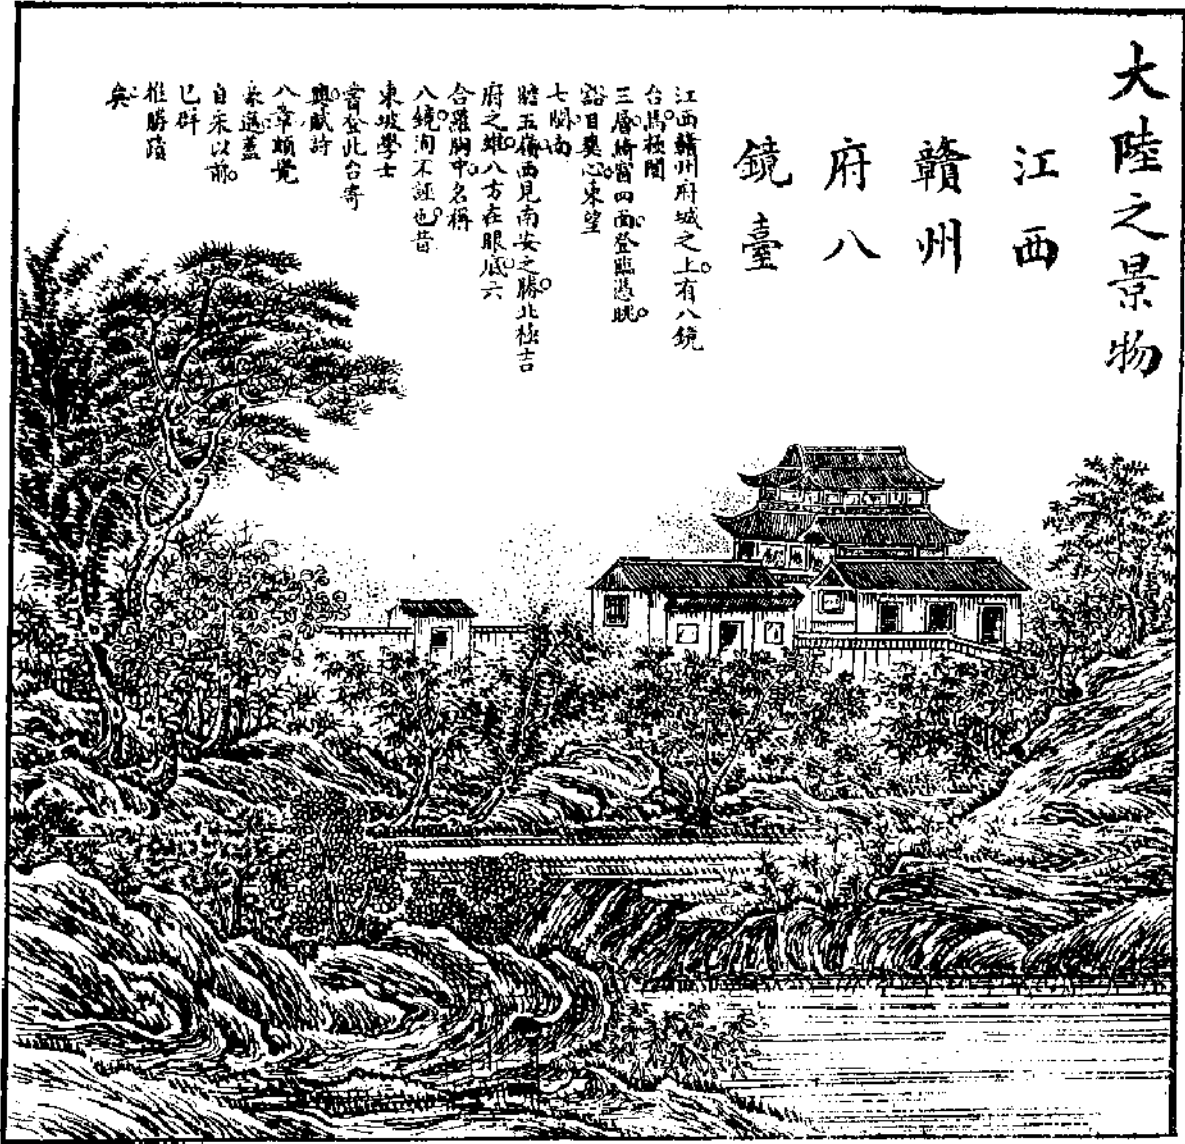 大陸之景物
江西
贛州
府八
鏡臺
江西贛州府城之上。有八鏡
台焉。極閎
三層。綺窗四面。登臨憑眺。
豁目爽心。東望
七閩。南
瞻五嶺。西見南安之勝。北極吉
府之雄。八方在眼底。六
合羅胸中。名稱
八鏡。洵不誣也。昔
東坡學士
嘗登此台。寄
興賦詩
八章。頗覺
豪邁。蓋
自宋以前。
已群
推勝蹟
矣。